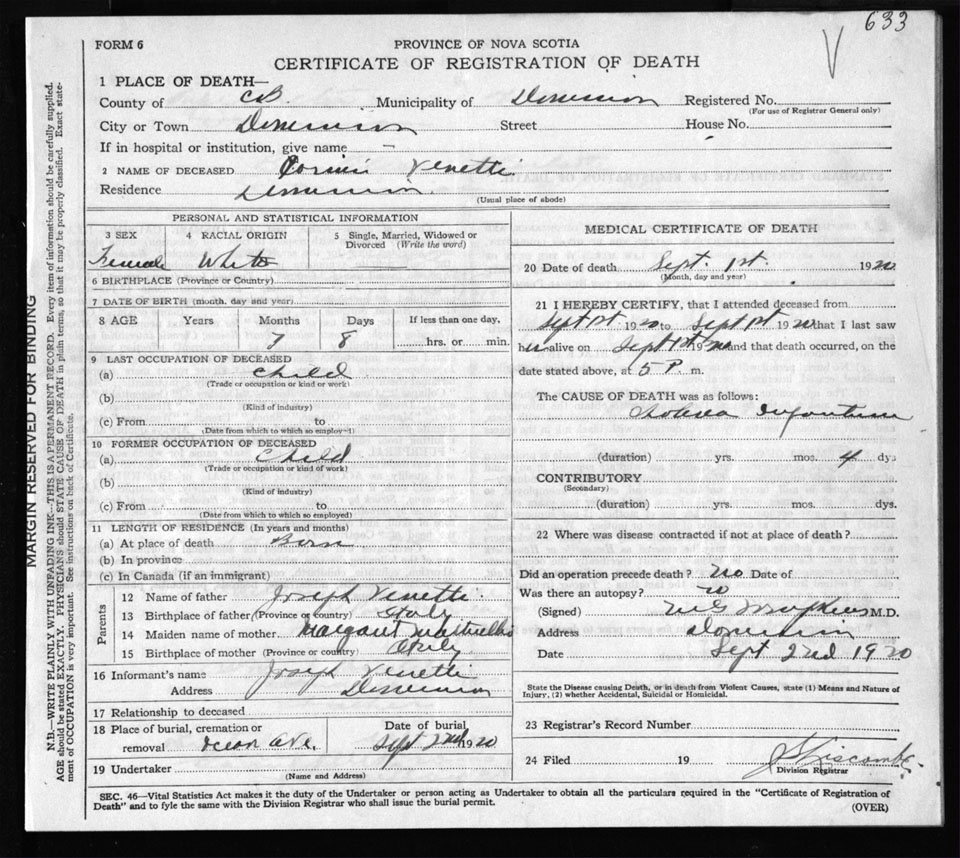 633
FORM 6
PROVINCE OF NOVA SCOTIA
CERTIFICATE OF REGISTRATION OF DEATH
1 PLACE OF DEATH—
County of C.B. Municipality of Dominion Registered No.
(For use of Registrar General only)
City or Town Dominion Street House No.
If in hospital or institution, give name —
2 NAME OF DECEASED Venetti
Residence Dominion
(Usual place of abode)
PERSONAL AND STATISTICAL INFORMATION
3 SEX 4 RACIAL ORIGIN 5 Single, Married, Widowed or Divorced (Write the word)
Female White
6 BIRTHPLACE (Province or Country)
7 DATE OF BIRTH (month, day and year)
8 AGE Years Months Days If less than one day,
7 8 hrs. or min.
9 LAST OCCUPATION OF DECEASED
(a) Child
(Trade or occupation or kind or work)
(b)
(Kind of industry)
(c) From to
(Date from which to which so employed)
10 FORMER OCCUPATION OF DECEASED
(a) Child
(Trade or occupation or kind of work)
(b)
(Kind of industry)
(c) From to
(Date from which to which so employed)
11 LENGTH OF RESIDENCE (In years and months)
(a) At place of death Born
(b) In province
(c) In Canada (if an immigrant)
Parents
12 Name of father Joseph Venetti
13 Birthplace of father (Province or country) Italy
14 Maiden name of mother Margaret
15 Birthplace of mother (Province or country)
16 Informant's name Joseph Venetti
Address Dominion
17 Relationship to deceased
18 Place of burial, cremation or Date of burial
removal Ocean Ave. Sept 2nd 1920
19 Undertaker
(Name and Address)
MEDICAL CERTIFICATE OF DEATH
20 Date of death Sept. 1st. 1920
(Month, day and year)
21 I HEREBY CERTIFY, that I attended deceased from
Sept 1st 1920 to Sept 1st 1920 that I last saw
her alive on Sept 1st 1920 and that death occurred, on the
date stated above, at 5 P. m.
The CAUSE OF DEATH was as follows:
Cholera Infantum
(duration) yrs. mos. 4 dys
CONTRIBUTORY
(Secondary)
(duration) yrs. mos. dys.
22 Where was disease contracted if not at place of death?
Did an operation precede death? no Date of
Was there an autopsy? no
(Signed) M.D.
Address Dominion
Date Sept 2nd 1920
State the Disease causing Death, or in death from Violent Causes, state (1) Means and Nature of
Injury, (2) whether Accidental, Suicidal or Homicidal.
23 Registrar's Record Number
24 Filed 19
Division Registrar
SEC. 46—Vital Statistics Act makes it the duty of the Undertaker or person acting as Undertaker to obtain all the particulars required in the "Certificate of Registration of
Death" and to fyle the same with the Division Registrar who shall issue the burial permit.
(OVER)
MARGIN RESERVED FOR BINDING
N.B.—WRITE PLAINLY WITH UNFADING INK—THIS IS A PERMANENT RECORD. Every item of information should be carefully supplied.
AGE should be stated EXACTLY. PHYSICIANS should STATE CAUSE OF DEATH in plain terms, so that it may be properly classified. Exact state-
ment of OCCUPATION is very important. See instructions on back of Certificate.